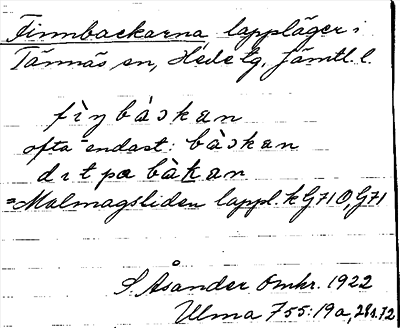 Finnbackarna lappläger i
Tännäs sn, Hede tg, Jämtl. l.
fìnbàskan
ofta endast: bàskan
dit pæ bàkan
=Malmagsliden lappl. k G71 O, G71
S. Åsander omkr. 1922
Ulma 755:19a, 281.72